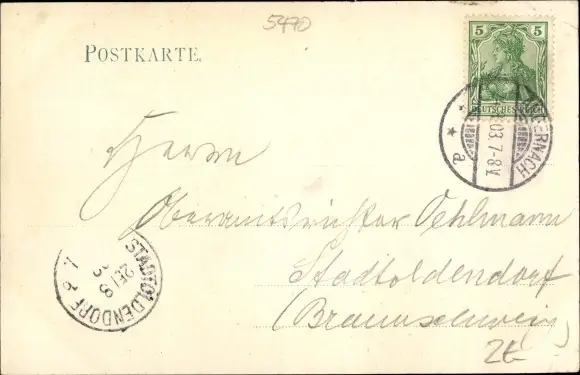 5470
POSTKARTE.
5 5
DEUTSCHES REICH
ANDERNACH
03.7-8V.
* * a
Herrn
Oberamtsrichter Oehlmann
Stadtoldendorf
(Braunschweig)
STADTOLDENDORF
25